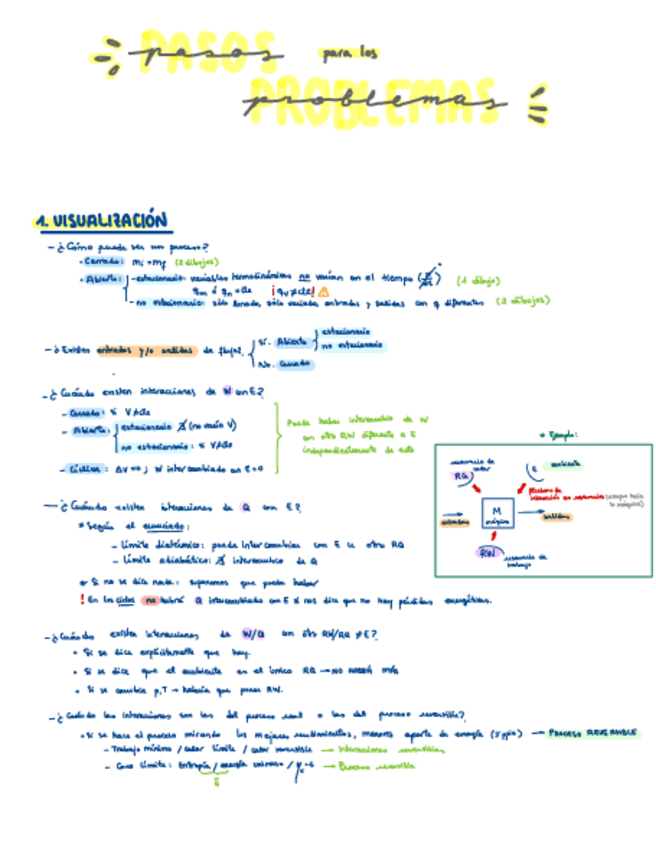 PASOS pasos para los
PROBLEMAS problemas
1. VISUALIZACIÓN
- ¿Cómo puede ser un proceso?
· Cerrado: mi = mf (2 dibujos)
· Abierto: - estacionario: variables termodinámicas no varían en el tiempo (1 dibujo)
¡qv ≠ cte! ⚠
- no estacionario: sólo llenado, sólo vaciado, entradas y salidas con q diferentes (2 dibujos)
- ¿Existen entradas y/o salidas de flujo?
Sí. Abierto estacionario
no estacionario
No. Cerrado
- ¿Cuándo existen interacciones de W con E?
- Cerrado: si V≠cte
- Abierto: estacionario ∄ (no varía V)
no estacionario: si V≠cte
- Cíclico: ΔV=0; W intercambiado con E=0
Puede haber intercambio de W
con otro RW diferente a E
independientemente de esto
* Ejemplo:
RQ
E ambiente
M
máquina
entradas
salidas
RW
- ¿Cuándo existen interacciones de Q con E?
* Según el enunciado:
- Límite diatérmico: puede intercambiar con E u otro RQ
- Límite adiabático: ∄ intercambio de Q
* Si no se dice nada: suponemos que puede haber
! En los ciclos no habrá Q intercambiado con E si nos dice que no hay pérdidas energéticas.
- ¿Cuándo existen interacciones de W/Q con otro RW/RQ ≠ E?
· Si se dice explícitamente que hay.
· Si se dice que el ambiente es el único RQ → NO HABRÁ MÁS
· Si se cambia p,T → habría que poner RW.
- ¿Cuándo las interacciones son las del proceso real o las del proceso reversible?
· Si se hace el proceso mirando los mejores rendimientos, menores aporte de energía → PROCESO REVERSIBLE
- Trabajo mínimo / calor límite / calor reversible → Interacciones reversibles
- Caso límite: Entropía / → Proceso reversible